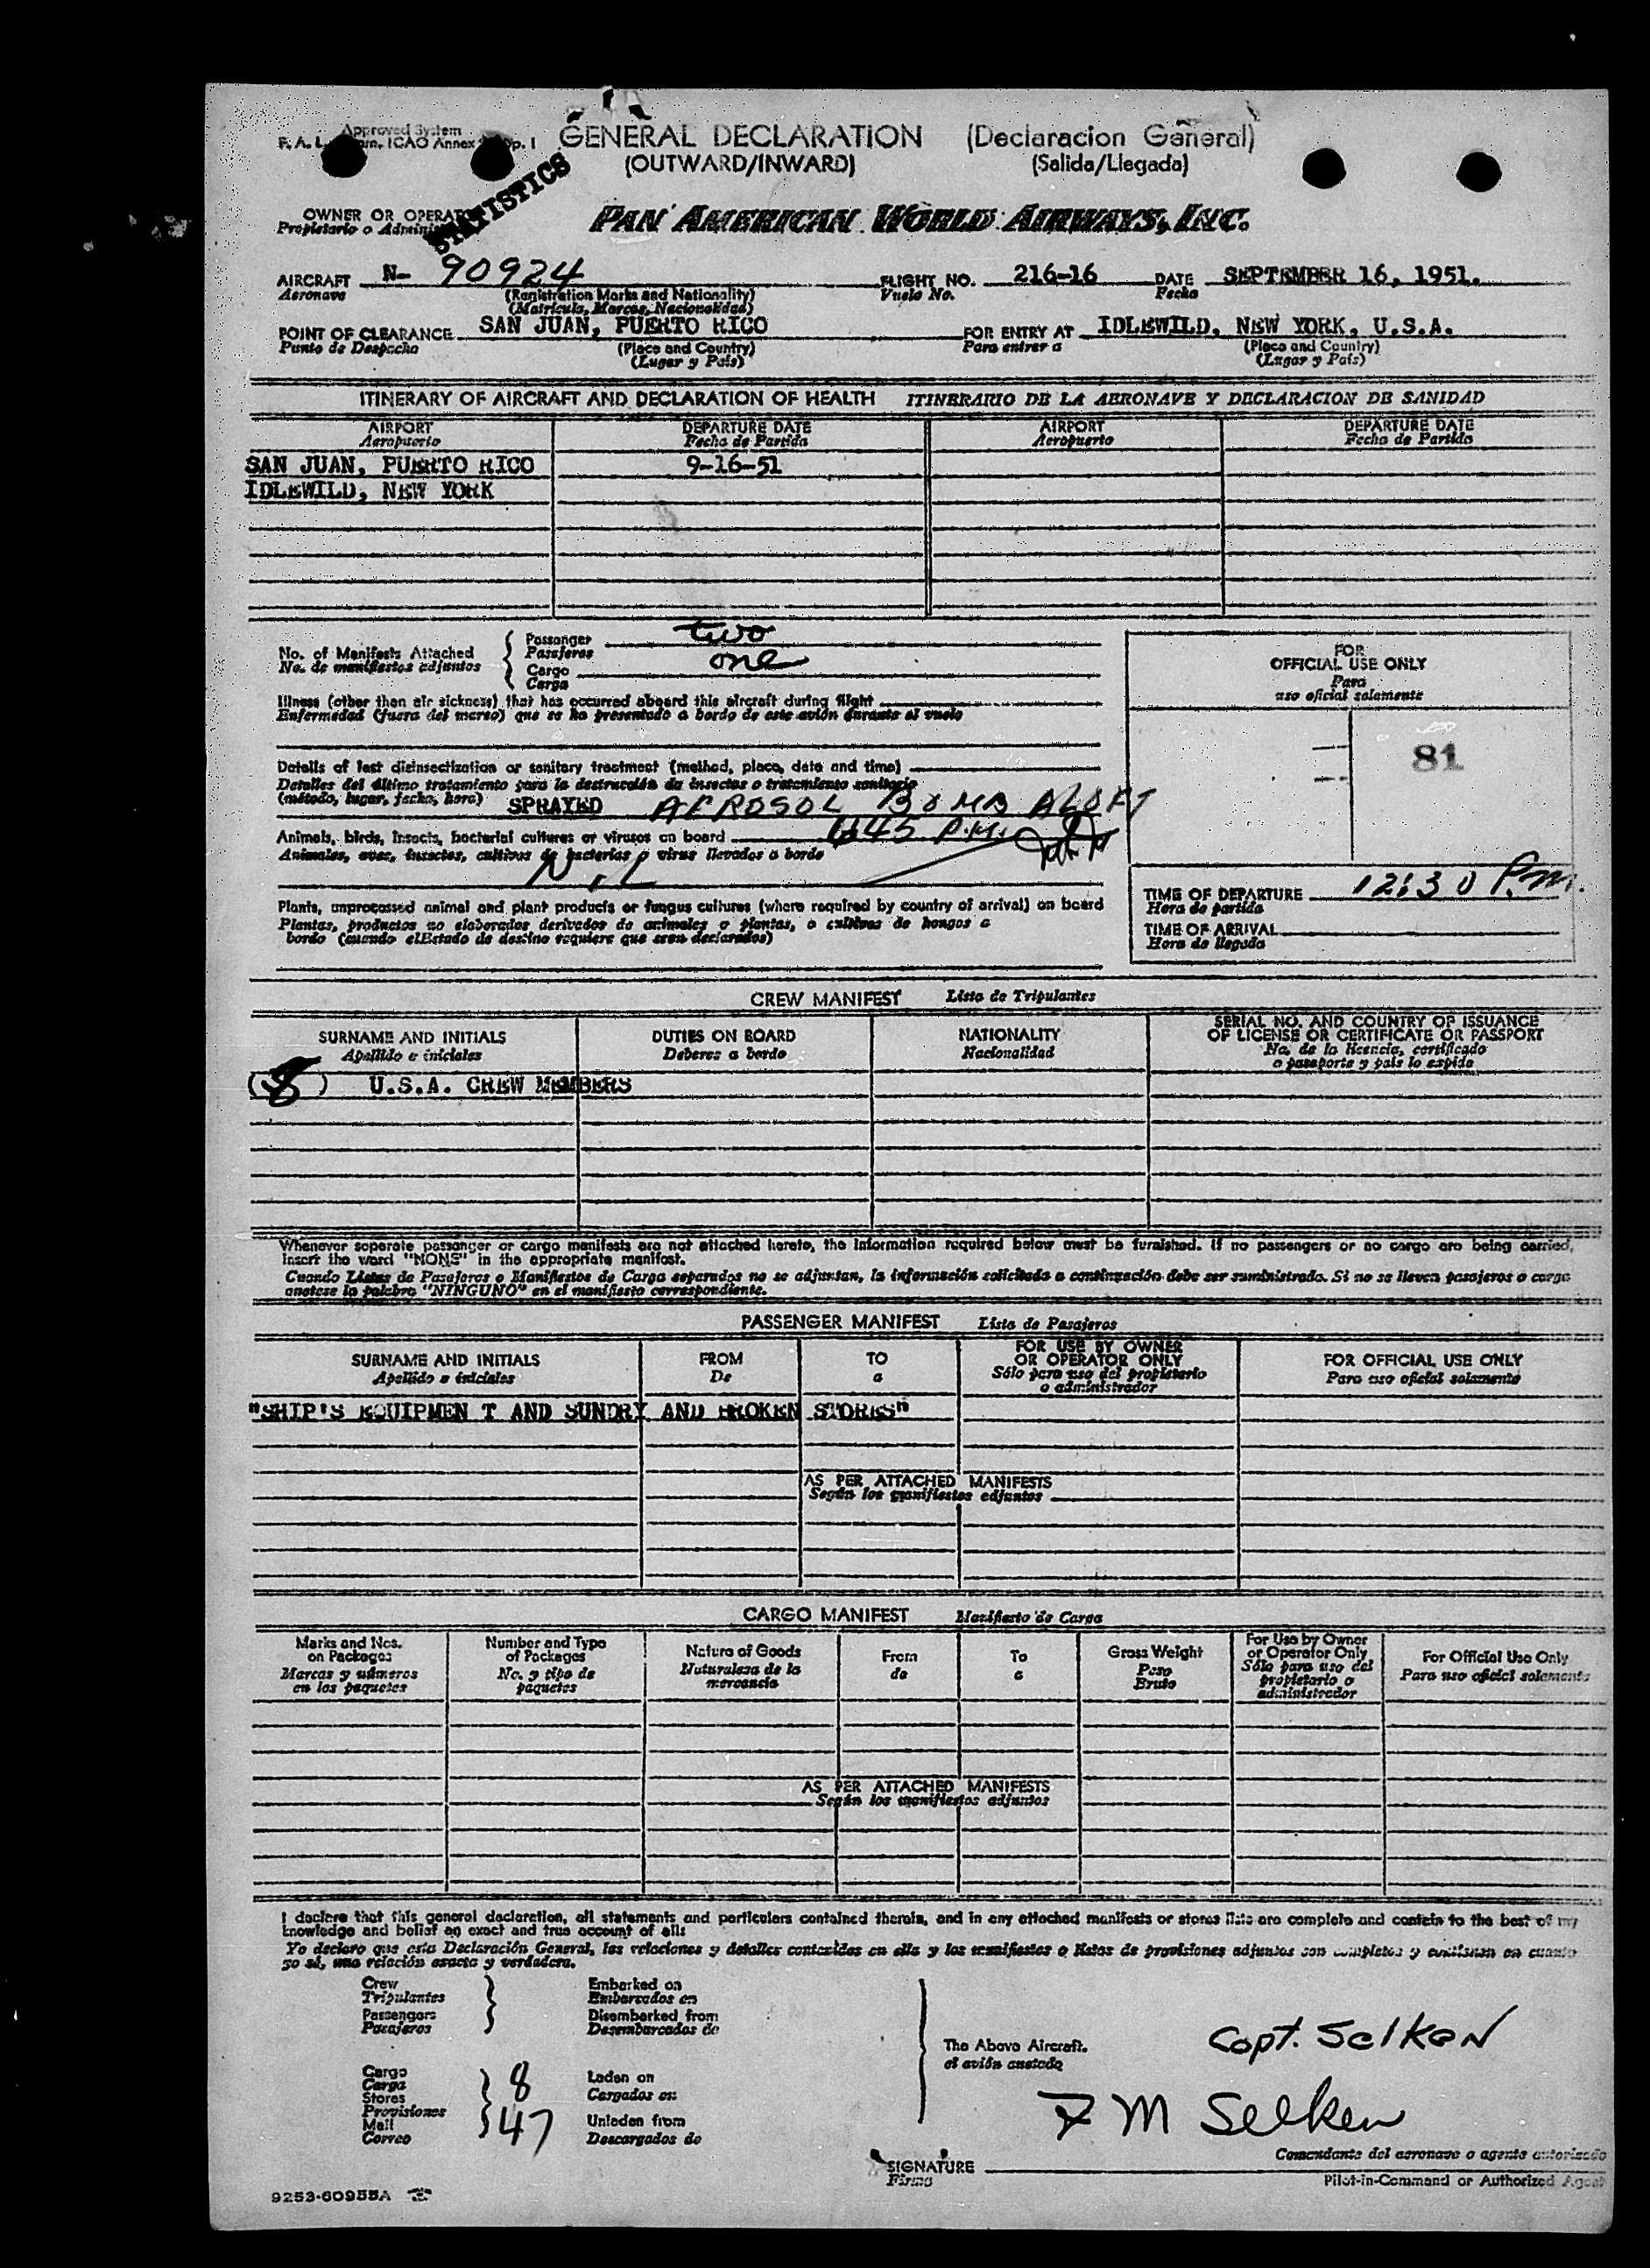 Approved System
GENERAL DECLARATION (Declaracion General)
F. A. L. ICAO Annex
(OUTWARD/INWARD) (Salida/Llegada)
STATISTICS
OWNER OR OPERATOR PAN AMERICAN WORLD AIRWAYS, INC.
Propietario o
AIRCRAFT N- 90924 FLIGHT NO. 216-16 DATE SEPTEMBER 16, 1951.
Aeronave (Registration Marks and Nationality) Vuelo No. Fecha
(Matricula, Marcas, Nacionalidad)
POINT OF CLEARANCE SAN JUAN, PUERTO RICO FOR ENTRY AT IDLEWILD, NEW YORK, U.S.A.
Punto de Despacho (Place and Country) Para entrar a (Place and Country)
(Lugar y País) (Lugar y País)
ITINERARY OF AIRCRAFT AND DECLARATION OF HEALTH ITINERARIO DE LA AERONAVE Y DECLARACION DE SANIDAD
AIRPORT DEPARTURE DATE AIRPORT DEPARTURE DATE
Aeropuerto Fecha de Partida Aeropuerto Fecha de Partida
SAN JUAN, PUERTO RICO 9-16-51
IDLEWILD, NEW YORK
Passenger two
No. of Manifests Attached Pasajeros
No. de manifiestos adjuntos Cargo one
Carga
Illness (other than air sickness) that has occurred aboard this aircraft during flight
Enfermedad (fuera del mareo) que se ha presentado a bordo de este avión durante el vuelo
Details of last disinsectization or sanitary treatment (method, place, date and time)
Detalles del último tratamiento para la destrucción de insectos o tratamiento sanitario
(método, lugar, fecha, hora) SPRAYED AEROSOL BOMB ALOFT
Animals, birds, insects, bacterial cultures or viruses on board 45 P.M.
Animales, aves, insectos, cultivos de bacterias o virus llevados a bordo
NIL
Plants, unprocessed animal and plant products or fungus cultures (where required by country of arrival) on board
Plantas, productos no elaborados derivados de animales o plantas, o cultivos de hongos a
bordo (cuando el Estado de destino requiere que sean declarados)
FOR
OFFICIAL USE ONLY
Para
uso oficial solamente
81
TIME OF DEPARTURE 12:30 P.m.
Hora de partida
TIME OF ARRIVAL
Hora de llegada
CREW MANIFEST Lista de Tripulantes
SURNAME AND INITIALS DUTIES ON BOARD NATIONALITY SERIAL NO. AND COUNTRY OF ISSUANCE
OF LICENSE OR CERTIFICATE OR PASSPORT
Apellido e iniciales Deberes a bordo Nacionalidad No. de la licencia, certificado
o pasaporte y país lo expide
(8) U.S.A. CREW MEMBERS
Whenever separate passenger or cargo manifests are not attached hereto, the information required below must be furnished. If no passengers or no cargo are being carried,
insert the word "NONE" in the appropriate manifest.
Cuando Listas de Pasajeros o Manifiestos de Carga separados no se adjuntan, la información solicitada a continuación debe ser suministrada. Si no se llevan pasajeros o carga
anotese la palabra "NINGUNO" en el manifiesto correspondiente.
PASSENGER MANIFEST Lista de Pasajeros
SURNAME AND INITIALS FROM TO FOR USE BY OWNER FOR OFFICIAL USE ONLY
OR OPERATOR ONLY
Apellido e iniciales De a Sólo para uso del propietario Para uso oficial solamente
o administrador
"SHIP'S EQUIPMEN T AND SUNDRY AND BROKEN STORES"
AS PER ATTACHED MANIFESTS
Según los manifiestos adjuntos
CARGO MANIFEST Manifiesto de Carga
Marks and Nos. Number and Type Nature of Goods From To Gross Weight For Use by Owner For Official Use Only
on Packages of Packages or Operator Only
Marcas y números No. y tipo de Naturaleza de la de a Peso Sólo para uso del Para uso oficial solamente
en los paquetes paquetes mercancía Bruto propietario o
administrador
AS PER ATTACHED MANIFESTS
Según los manifiestos adjuntos
I declare that this general declaration, all statements and particulars contained therein, and in any attached manifests or stores lists are complete and contain to the best of my
knowledge and belief an exact and true account of all:
Yo declaro que esta Declaración General, las relaciones y detalles contenidos en ella y los manifiestos o listas de provisiones adjuntos son completos y contienen en cuanto
yo sé, una relación exacta y verdadera.
Crew Embarked on
Tripulantes Embarcados en
Passengers Disembarked from
Pasajeros Desembarcados de
The Above Aircraft.
el avión anotado
Capt. Selken
Cargo Laden on
Carga 8 Cargados en
Stores
Provisiones
Mail 47 Unladen from
Correo Descargados de
F M Selken
Comandante del aeronave o agente autorizado
SIGNATURE
Firma Pilot-in-Command or Authorized Agent
9253-60955A